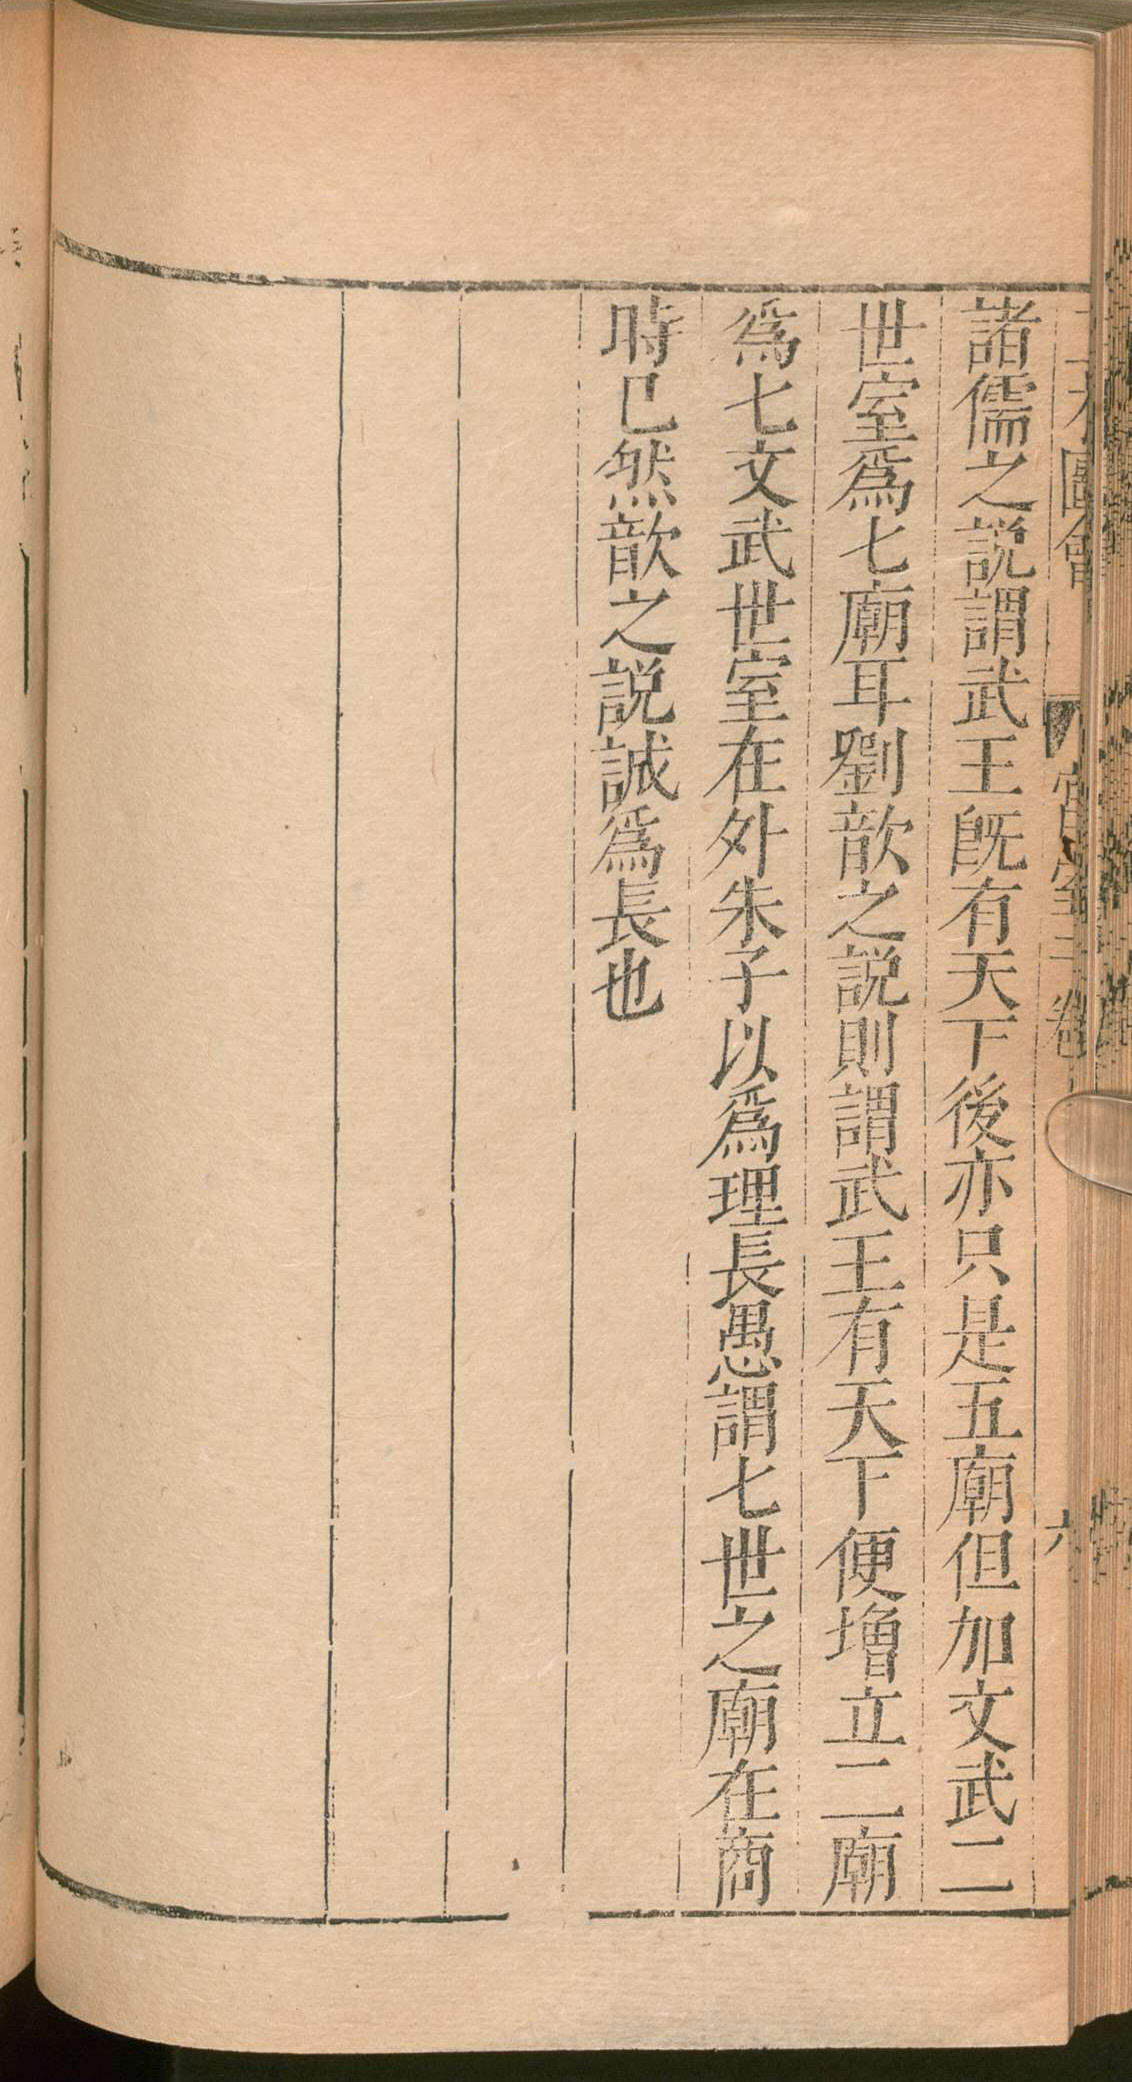 諸儒之説謂武王旣有天下後亦只是五廟但加文武二
世室爲七廟耳劉歆之説則謂武王有天下便增立二廟
爲七文武世室在外朱子以爲理長愚謂七世之廟在商
時已然歆之説誠爲長也